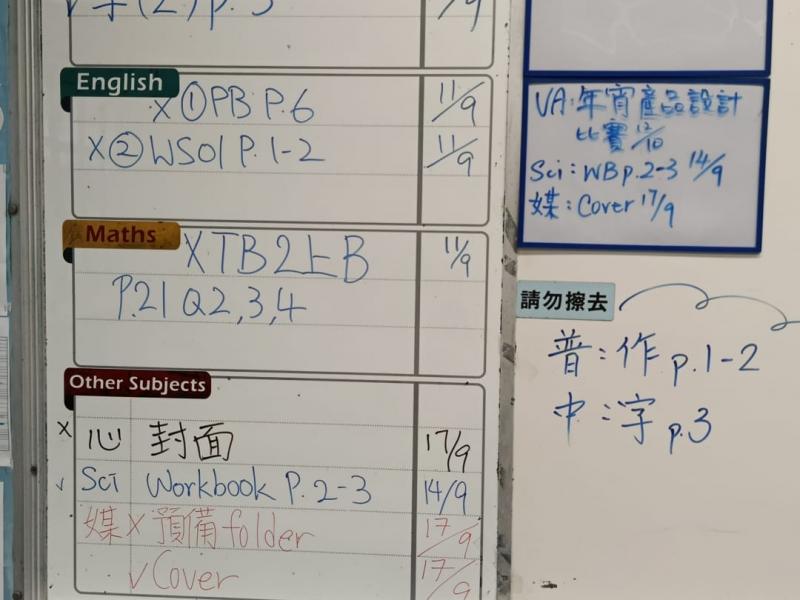 ✓字(2) p.3 /9
English
X ①PB P.6 11/9
X ② WS01 P.1-2 11/9
Maths
X TB2上B 11/9
P.21 Q2,3,4
Other Subjects
X 心 封面 17/9
✓ Sci Workbook P.2-3 14/9
媒 X 預備folder 17/9
✓Cover 17/9
VA:年宵產品設計
比賽 12/10
Sci: WB p.2-3 14/9
媒: Cover 17/9
請勿擦去
普:作 p.1-2
中:字 p.3